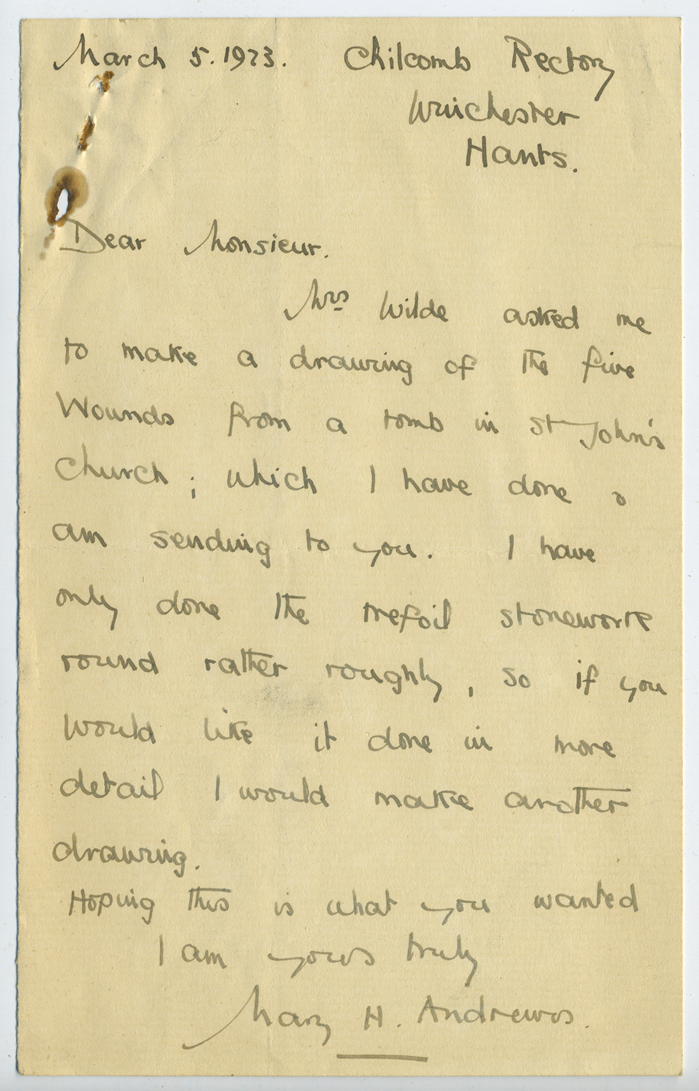 March 5. 1923. Chilcomb Rectory
Winchester
Hants.
Dear Monsieur.
Mrs Wilde asked me
to make a drawing of the five
Wounds from a tomb in St John's
church; which I have done &
am sending to you. I have
only done the trefoil stonework
round rather roughly, so if you
would like it done in more
detail I would make another
drawing.
Hoping this is what you wanted
I am yours truly
Mary H. Andrews.